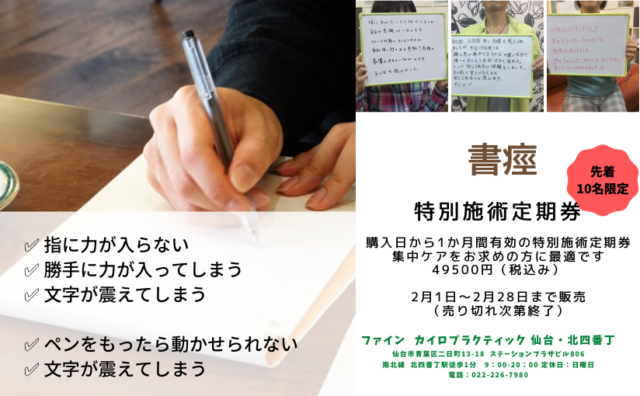 書痙
先着
10名限定
特別施術定期券
購入日から1か月間有効の特別施術定期券
集中ケアをお求めの方に最適です
49500円（税込み）
2月1日～2月28日まで販売
（売り切れ次第終了）
ファイン カイロプラクティック 仙台・北四番丁
仙台市青葉区二日町13-18 ステーションプラザビル806
南北線 北四番丁駅徒歩1分 9：00-20：00 定休日：日曜日
電話：022-226-7980
✅ 指に力が入らない
✅ 勝手に力が入ってしまう
✅ 文字が震えてしまう
✅ ペンをもったら動かせられない
✅ 文字が震えてしまう